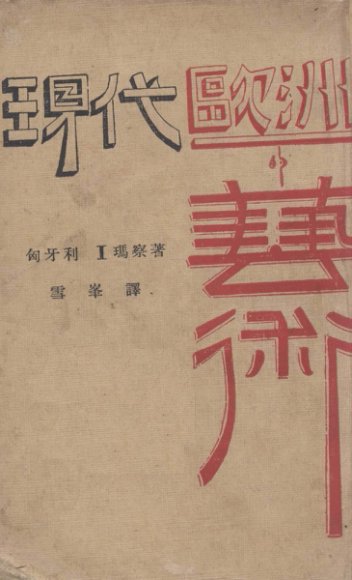 現代歐洲
的
藝術
匈牙利 I 瑪察著
雪峯譯